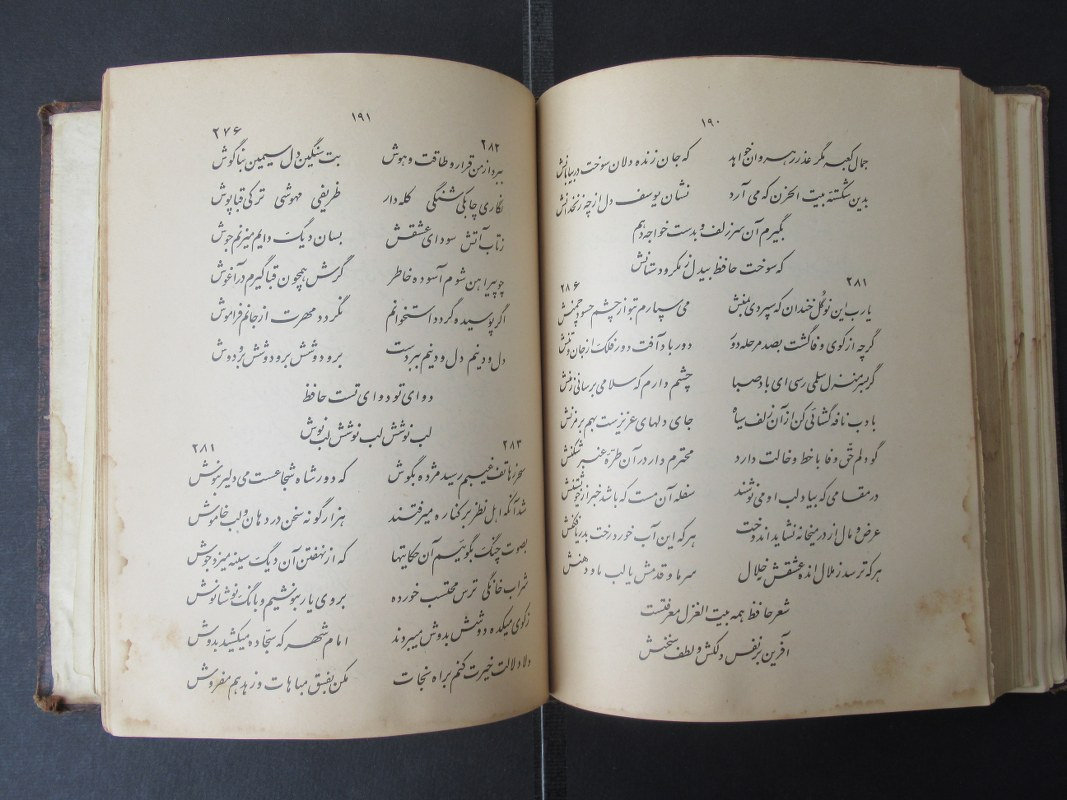 ۱۹۰
جمال کعبه مگر عذر رهروان خواهد که جان زنده دلان سوخت در بیابانش
بدین شکستهٔ بیت الحزن که می آرد نشان یوسف دل از چه زنخدانش
بگیرم آن سر زلف و بدست خواجه دهم
که سوخت حافظ بیدل ز مکر و دستانش
۲۸۱ ۲۸۶
یارب این نوگل خندان که سپردی بمنش می سپارم بتو از چشم حسود چمنش
گرچه از کوی وفا گشت بصد مرحله دور دور باد آفت دور فلک از جان و تنش
گر بسر منزل سلمی رسی ای باد صبا چشم دارم که سلامی برسانی ز منش
بادب نافه گشائی کن از آن زلف سیاه جای دلهای عزیزست بهم بر مزنش
گو دلم حق وفا با خط و خالت دارد محترم دار در آن طره عنبر شکنش
در مقامی که بیاد لب او می نوشند سفله آن مست که باشد خبر از خویشتنش
عرض و مال از در میخانه نشاید اندوخت هر که این آب خورد رخت بدریا فکنش
هر که ترسد ز ملال انده عشقش نه حلال سر ما و قدمش یا لب ما و دهنش
شعر حافظ همه بیت الغزل معرفتست
آفرین بر نفس دلکش و لطف سخنش
۱۹۱
۲۸۲ ۲۷۶
ببرد از من قرار و طاقت و هوش بت سنگین دل سیمین بناگوش
نگاری چابکی شنگی کله دار ظریفی مهوشی ترکی قباپوش
ز تاب آتش سودای عشقش بسان دیک دایم میزنم جوش
چو پیراهن شوم آسوده خاطر گرش همچون قبا گیرم در آغوش
اگر پوسیده گردد استخوانم نگردد مهرت از جانم فراموش
دل و دینم دل و دینم ببرست بر و دوشش بر و دوشش بر و دوش
دوای تو دوای تست حافظ
لب نوشش لب نوشش لب نوش
۲۸۳ ۲۸۱
سحر ز هاتف غیبم رسید مژده بگوش که دور شاه شجاعست می دلیر بنوش
شد آنکه اهل نظر بر کناره میرفتند هزار گونه سخن در دهان و لب خاموش
بصوت چنگ بگوئیم آن حکایتها که از نهفتن آن دیک سینه میزد جوش
شراب خانگی ترس محتسب خورده بروی یار بنوشیم و بانگ نوشانوش
ز کوی میکده دوشش بدوش میبردند امام شهر که سجاده میکشید بدوش
دلا دلالت خیرت کنم براه نجات مکن بفسق مباهات و زهد هم مفروش